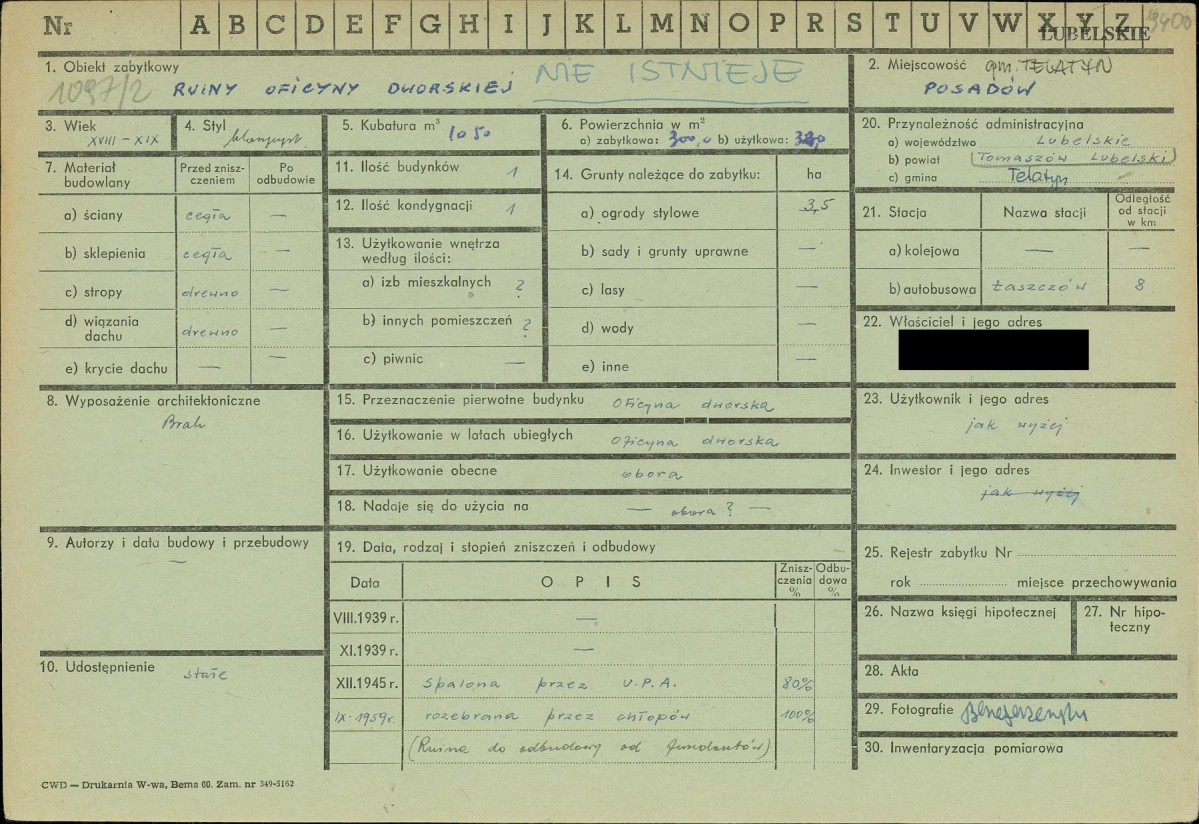 Nr A B C D E F G H I J K L M N O P R S T U V W X Y Z 9400
LUBELSKIE
1. Obiekt zabytkowy
1097/2 RUINY OFICYNY DWORSKIEJ NIE ISTNIEJE
2. Miejscowość gm. TELATYN
POSADÓW
3. Wiek
XVIII-XIX
4. Styl
5. Kubatura m³ 1050
6. Powierzchnia w m²
a) zabytkowa: 300,0 b) użytkowa:
7. Materiał budowlany
Przed zniszczeniem
Po odbudowie
a) ściany cegła —
b) sklepienia cegła —
c) stropy drewno —
d) wiązania dachu drewno —
e) krycie dachu — —
8. Wyposażenie architektoniczne
Brak
9. Autorzy i data budowy i przebudowy
—
10. Udostępnienie stałe
11. Ilość budynków 1
12. Ilość kondygnacji 1
13. Użytkowanie wnętrza według ilości:
a) izb mieszkalnych ?
b) innych pomieszczeń ?
c) piwnic —
14. Grunty należące do zabytku: ha
a) ogrody stylowe 3,5
b) sady i grunty uprawne —
c) lasy —
d) wody —
e) inne —
15. Przeznaczenie pierwotne budynku oficyna dworska
16. Użytkowanie w latach ubiegłych oficyna dworska
17. Użytkowanie obecne obora
18. Nadaje się do użycia na — obora? —
19. Data, rodzaj i stopień zniszczeń i odbudowy
Data OPIS Zniszczenia % Odbudowa %
VIII.1939 r. —
XI.1939 r. —
XII.1945 r. spalona przez U.P.A. 80%
IX-1959r. rozebrana przez chłopów 100%
(Ruina do odbudowy od fundamentów)
20. Przynależność administracyjna
a) województwo Lubelskie
b) powiat (Tomaszów Lubelski)
c) gmina Telatyn
21. Stacja Nazwa stacji Odległość od stacji w km
a) kolejowa — —
b) autobusowa Łaszczów 8
22. Właściciel i jego adres
23. Użytkownik i jego adres
jak wyżej
24. Inwestor i jego adres
jak wyżej
25. Rejestr zabytku Nr
rok miejsce przechowywania
26. Nazwa księgi hipotecznej
27. Nr hipoteczny
28. Akta
29. Fotografie
30. Inwentaryzacja pomiarowa
CWD — Drukarnia W-wa, Bema 60. Zam. nr 349-5162